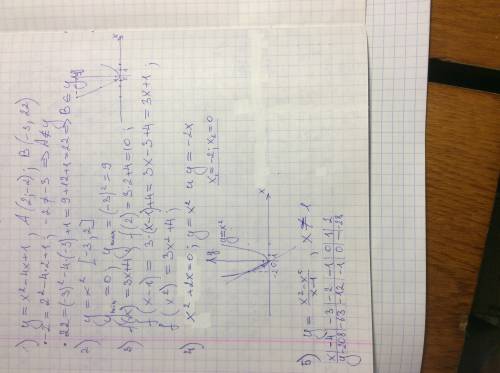 1) y = x² - 4x + 1, A(2; -2); B(-3; 22)
• -2 = 2² - 4·2 + 1; -2 ≠ -3 ⇒ A ∉ y
• 22 = (-3)² - 4·(-3) + 1 = 9 + 12 + 1 = 22 ⇒ B ∈ y
2) y = x² [-3; 2]
y min = 0; y max = (-3)² = 9
3) f(x) = 3x + 4; f(2) = 3·2 + 4 = 10;
f(x-1) = 3(x-1) + 4 = 3x - 3 + 4 = 3x + 1;
f(x²) = 3x² + 4;
4) x² + 2x = 0; y = x² и y = -2x
x₁ = -2; x₂ = 0
y y = x²
-2 0 1 x
5) y = (x² - x⁵)/(x - 1), x ≠ 1
x | -4 | -3 | -2 | -1 | 0 | 1 | 2
y | -208 | -63 | -12 | -1 | 0 | | -28